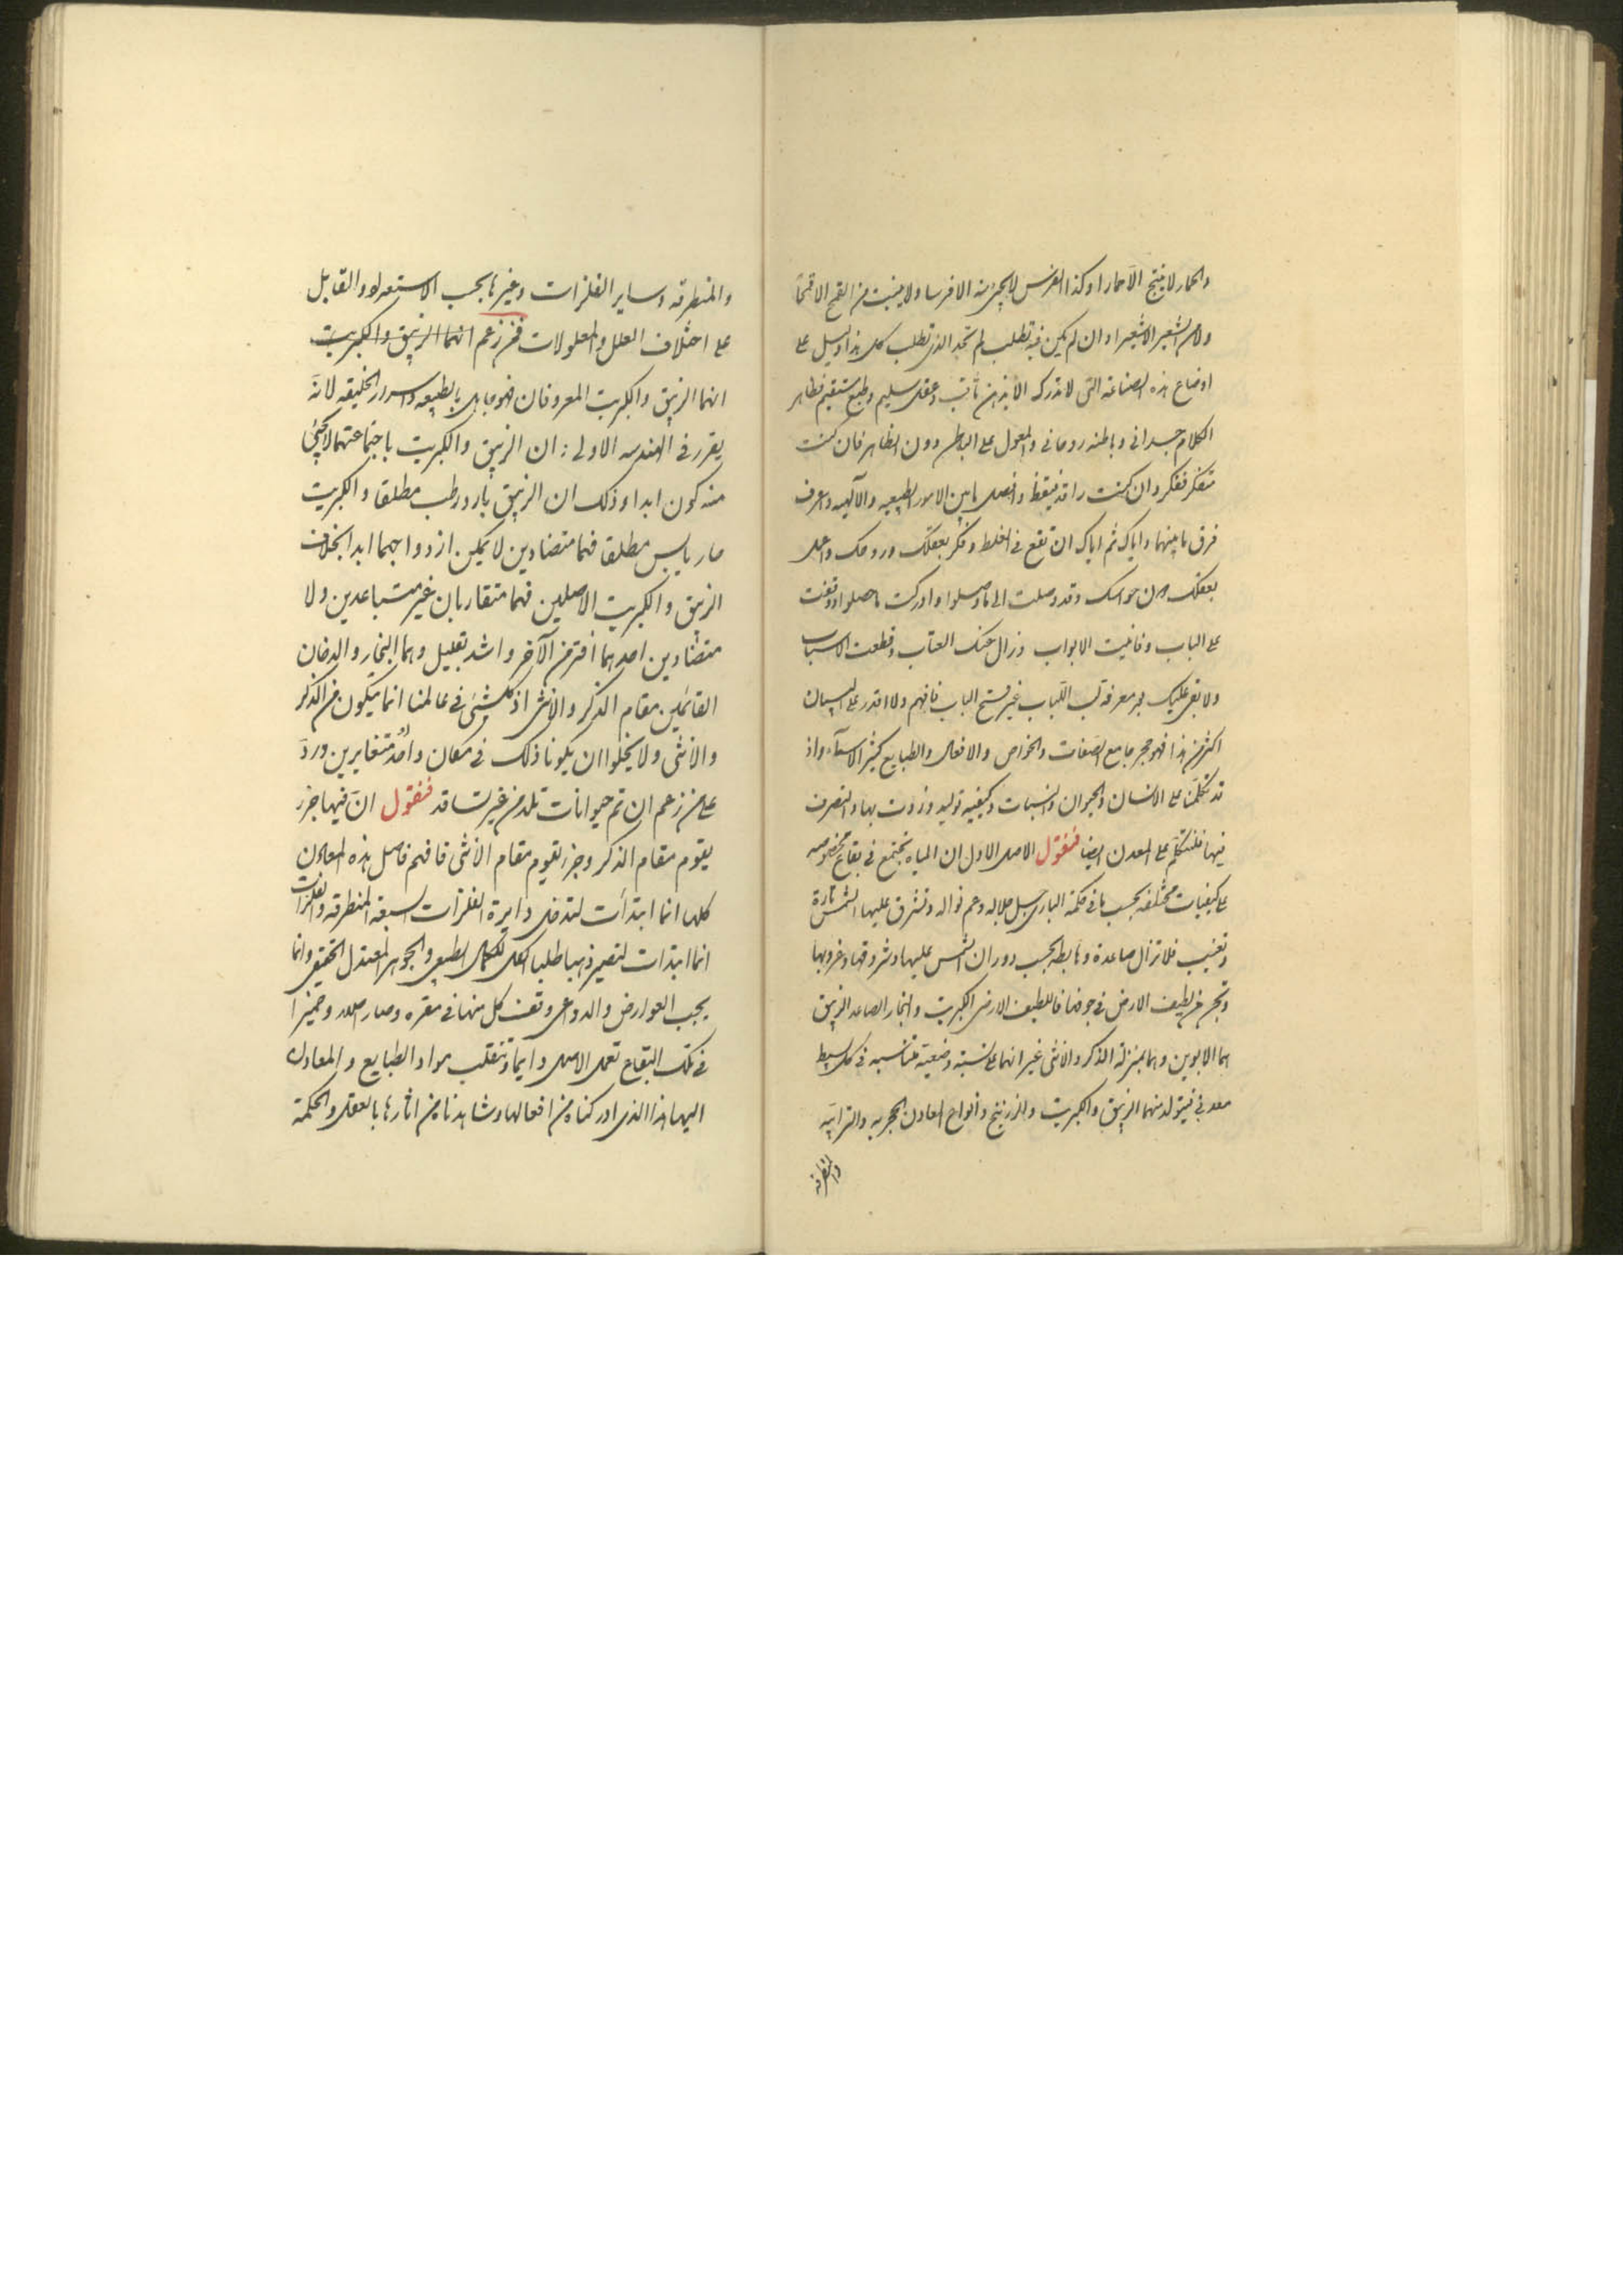 والحمار لا ينتج الا حمارا وكذا الفرس لا يجئ منه الا فرسا ولا ينبت من القمح الا قمحا
ولا من الشعير الا شعيرا وان لم يكن فيه تطلب لم تجد الذى تطلب كل هذا دليل على
اوضاع هذه الصناعة التى لا تدرك الا بذهن ثاقب وعقل سليم وطبع مستقيم فظاهر
الكلام جسدانى وباطنه روحانى والمعول على الباطن دون الظاهر فان كنت
متفكر ففكر وان كنت راقد فتيقظ وافصل ما بين الامور الطبيعيه والآلهيه واعرف
فرق ما بينهما واياك ثم اياك ان تقع فى الغلط وفكر بعقلك وروحك واعمل
بعقلك من حواسك وقد وصلت الى ما وصلوا وادركت ما حصلوا ووقفت
على الباب وفاتحت الابواب وزال عنك العتاب وقطعت الاسباب
ولا بقى عليك بمعرفة لب اللباب غير فتح الباب فافهم ولا اقدر على البيان
اكثر من هذا فهو حجر جامع الصفات والخواص والافعال والطبايع كثير الاسماء واذ
قد تكلمنا على الانسان والحيوان والنبات وكيفية توليد وزوت بها والتصرف
فيها فلنتكلم على المعدن ايضا فنقول الاصل الاول ان المياه تجتمع فى بقاع مخصوصه
على كيفيات مختلفه بحسب ما فى حكمة البارى جل جلاله وعم نواله وتشرق عليها الشمس تارة
وتغيب فلا تزال صاعدة وهابطة بحسب دوران الشمس عليها وشروقها وغروبها
وتجر من لطيف الارض فى جوفها فاللطيف الارضى الكبريت والبخار الصاعد الزيبق
هما الابوين وهما بمنزلة الذكر والانثى غير انهما على نسبة وضعية متناسبه فى كل بسيط
معدنى فيتولد منهما الزيبق والكبريت والزرنيخ وانواع المعادن الحجريه والترابيه
والمنطرقه
والمنطرقه وساير الفلزات وغيرها بحسب الاستعداد والقابل
على اختلاف العلل والمعلولات فمن زعم انهما الزيبق والكبريت
انهما الزيبق والكبريت المعروفان فهو جاهل بالطبيعه واسرار الخليقه لانه
يقرر فى الهندسه الاولى ان الزيبق والكبريت باجتماعتهما لا يجئ
منه كون ابدا وذلك ان الزيبق بارد رطب مطلقا والكبريت
حار يابس مطلقا فهما متضادين لا يمكن ازدواجهما ابدا بخلاف
الزيبق والكبريت الاصلين فهما متقاربان غير متباعدين ولا
متضادين احدهما افتر من الآخر واشد بقليل وهما البخار والدخان
القائمين مقام الذكر والانثى اذ كل شئ فى عالمنا انما يتكون من الذكر
والانثى ولا يخلوا ان يكونا ذلك فى مكان واحد او متغايرين ورد
على من زعم ان ثم حيوانات تلد من غير تسافد فنقول ان فيها جزء
يقوم مقام الذكر وجزء يقوم مقام الانثى فافهم فاصل هذه المعادن
كلها انما ابتدأت لتدخل دايرة الفلزات السبعه المنطرقه والفلزات
انما ابتدات لتصير ذهبا طلبا الكل للكمال الطبيعى والجوهر المعتدل الحقيقى وانما
بحسب العوارض والدواعى وقفت كل منها فى مقره وصار اصلا وخميرا
فى تلك البقاع تعمل الاصل دايما وتنقلب مواد الطبايع والمعادن
اليها هذا الذى ادركناه من افعالها وشاهدناه من اثارها بالعقل والحكمة